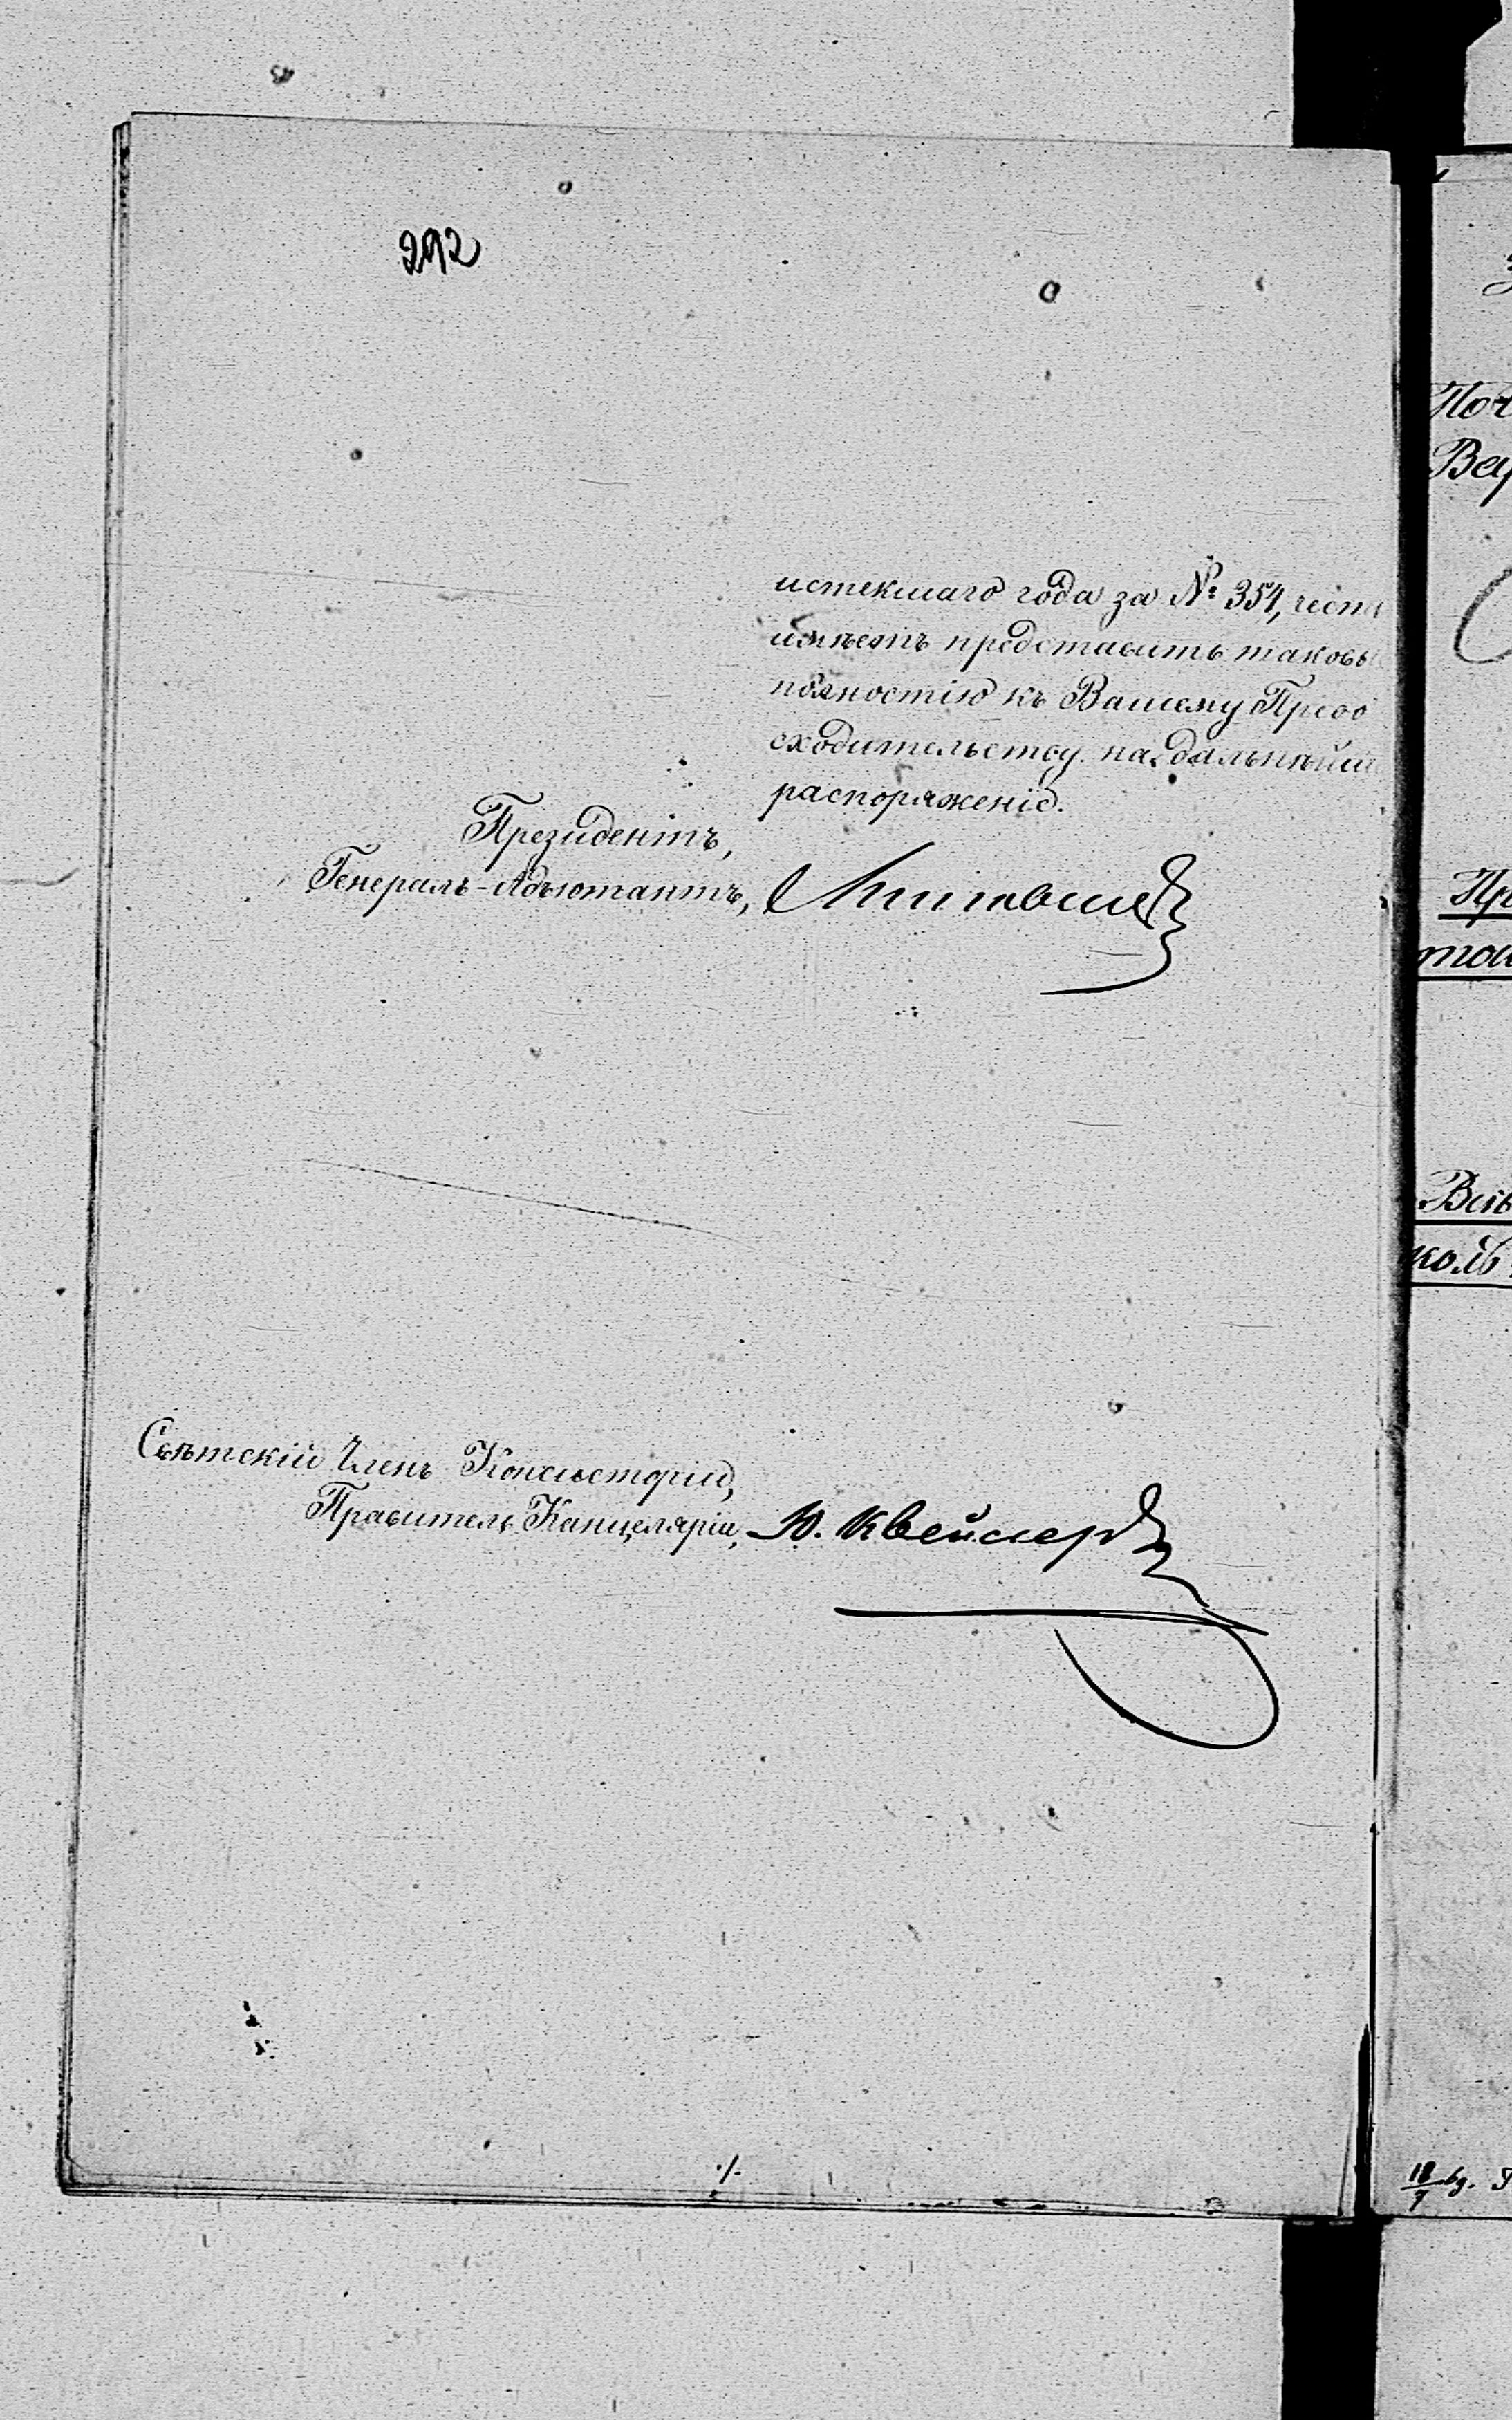 292
истекшаго года за № 354, чест
имѣетъ представить таковы
полностію къ Вашему Прево
сходительству на дальнѣйш
распоряженіе.
Президентъ,
Генералъ-Адъютантъ,
Свѣтскій Членъ Консисторіи,
Правитель Канцеляріи, Ю. Квейссер
Поч
Вар
Пр
то